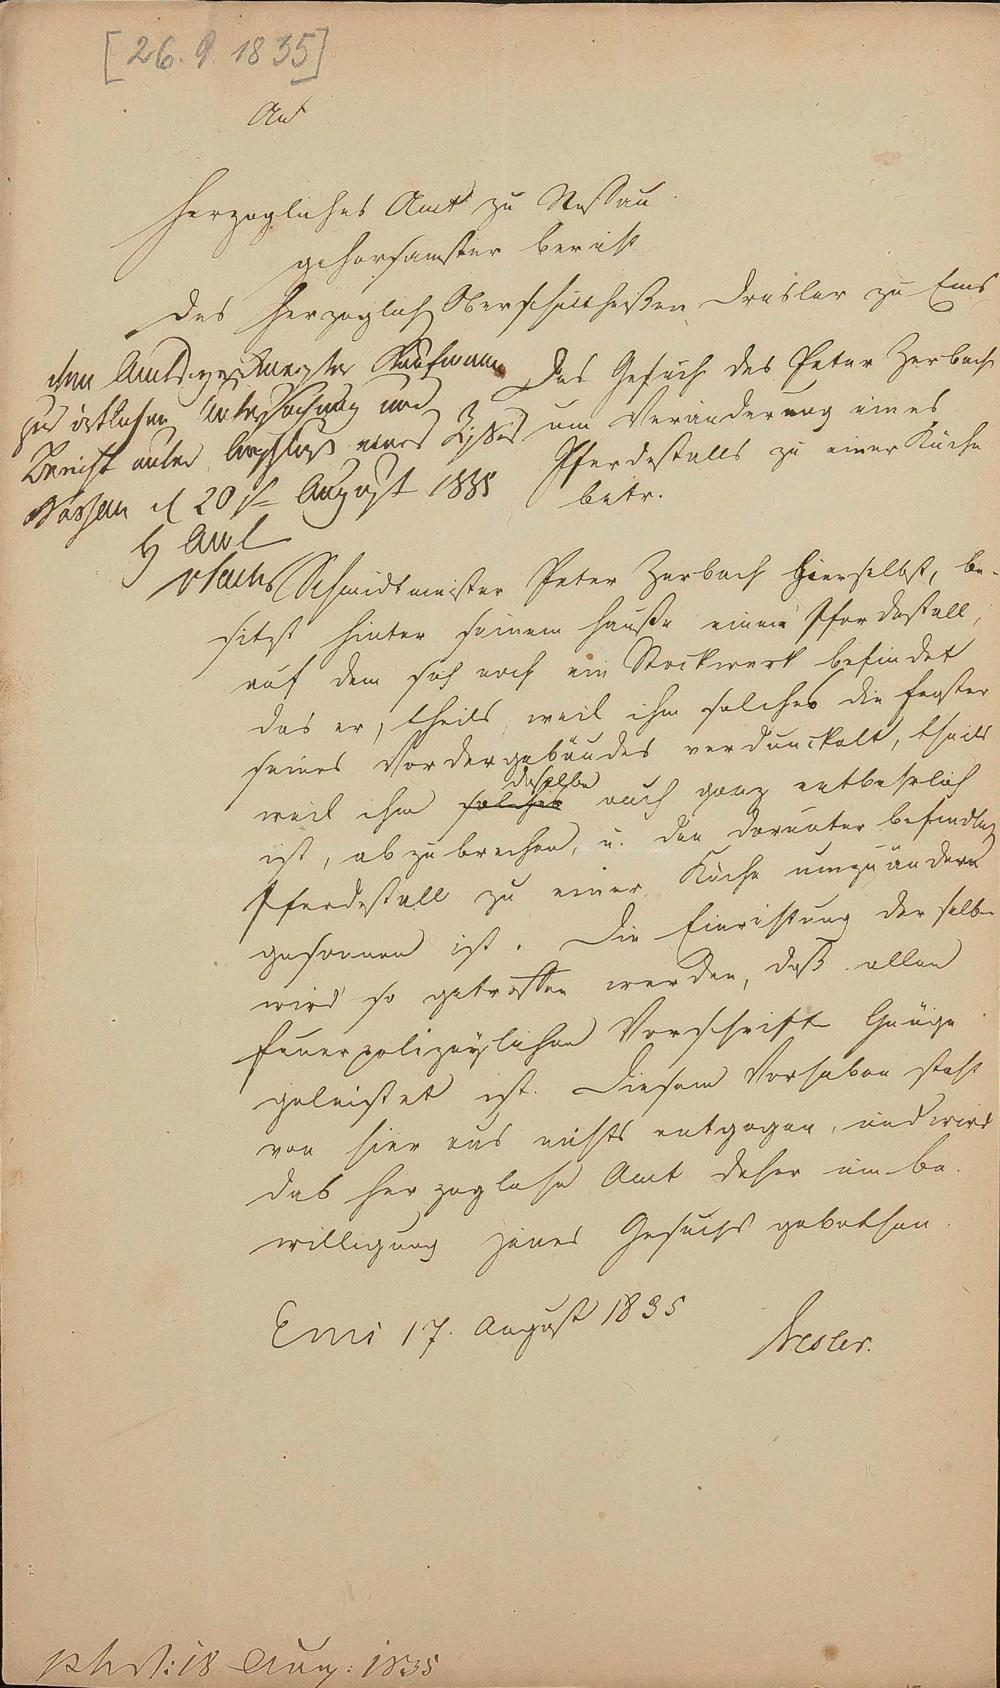 [26. 8. 1835]
An
Herzogliches Amt zu Nassau
gehorsamster Bericht
des Herzoglich Oberschultheißen Dresler zu Ems
Das Gesuch des Peter Zerbach
um Veränderung eines
Pferdestalls zu einer Küche
betr.
dem Amts Kaufmann
zur örtlichen Untersuchung und
Bericht unter Anschluß eines Risses
Nassau d 20 August 1835
H Amt
Schmidtmeister Peter Zerbach hierselbst, be-
sitzt hinter seinem Hauße einen Pferdestall,
auf dem sich noch ein Stockwerk befindet
das er, theils weil ihm solches die Fenster
seines Vordergebäudes verdunckelt, theils
weil ihm solches dasselbe auch ganz entbehrlich
ist, abzubrechen, u. den darunter befindlich
Pferdestall zu einer Küche umzuändern
gesonnen ist. Die Einrichtung derselben
wird so getroffen werden, daß allen
feuerpolizeylichen Vorschriften Genüge
geleistet ist. Diesem Vorhaben steht
von hier aus nichts entgegen, und wird
das herzogliche Amt daher um Be-
willigung jenes Gesuchs gebethen.
Ems 17. August 1835
Dresler.
18 Aug: 1835